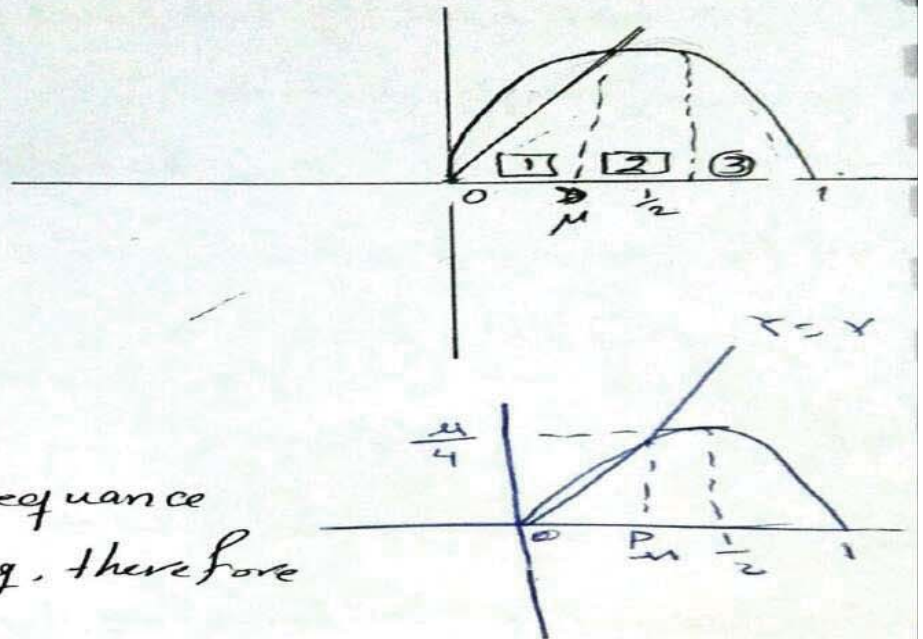 1 2 3
0 μ 1/2 1
x = x
μ/4
equance
g. therefore
0 Pμ 1/2 1